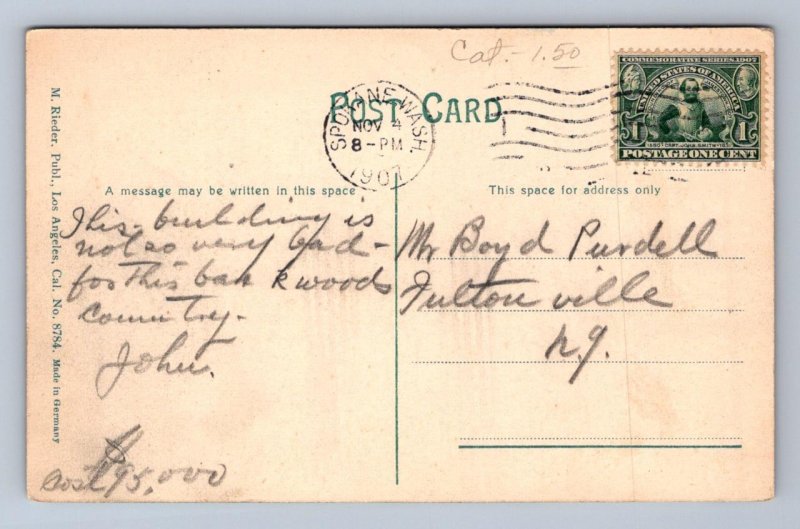 Cat. - 1.50
POST CARD
SPOKANE, WASH.
NOV 4
8-PM
1907
COMMEMORATIVE SERIES 1907
UNITED STATES OF AMERICA
1 1
1580 CAPT. JOHN SMITH 1631
POSTAGE ONE CENT
A message may be written in this space
This building is
not so very bad -
for this back woods
country.
John.
$
cost 95,000
This space for address only
Mr Boyd Purdell
Fultonville
N.Y.
M. Rieder, Publ., Los Angeles, Cal. No. 8784. Made in Germany